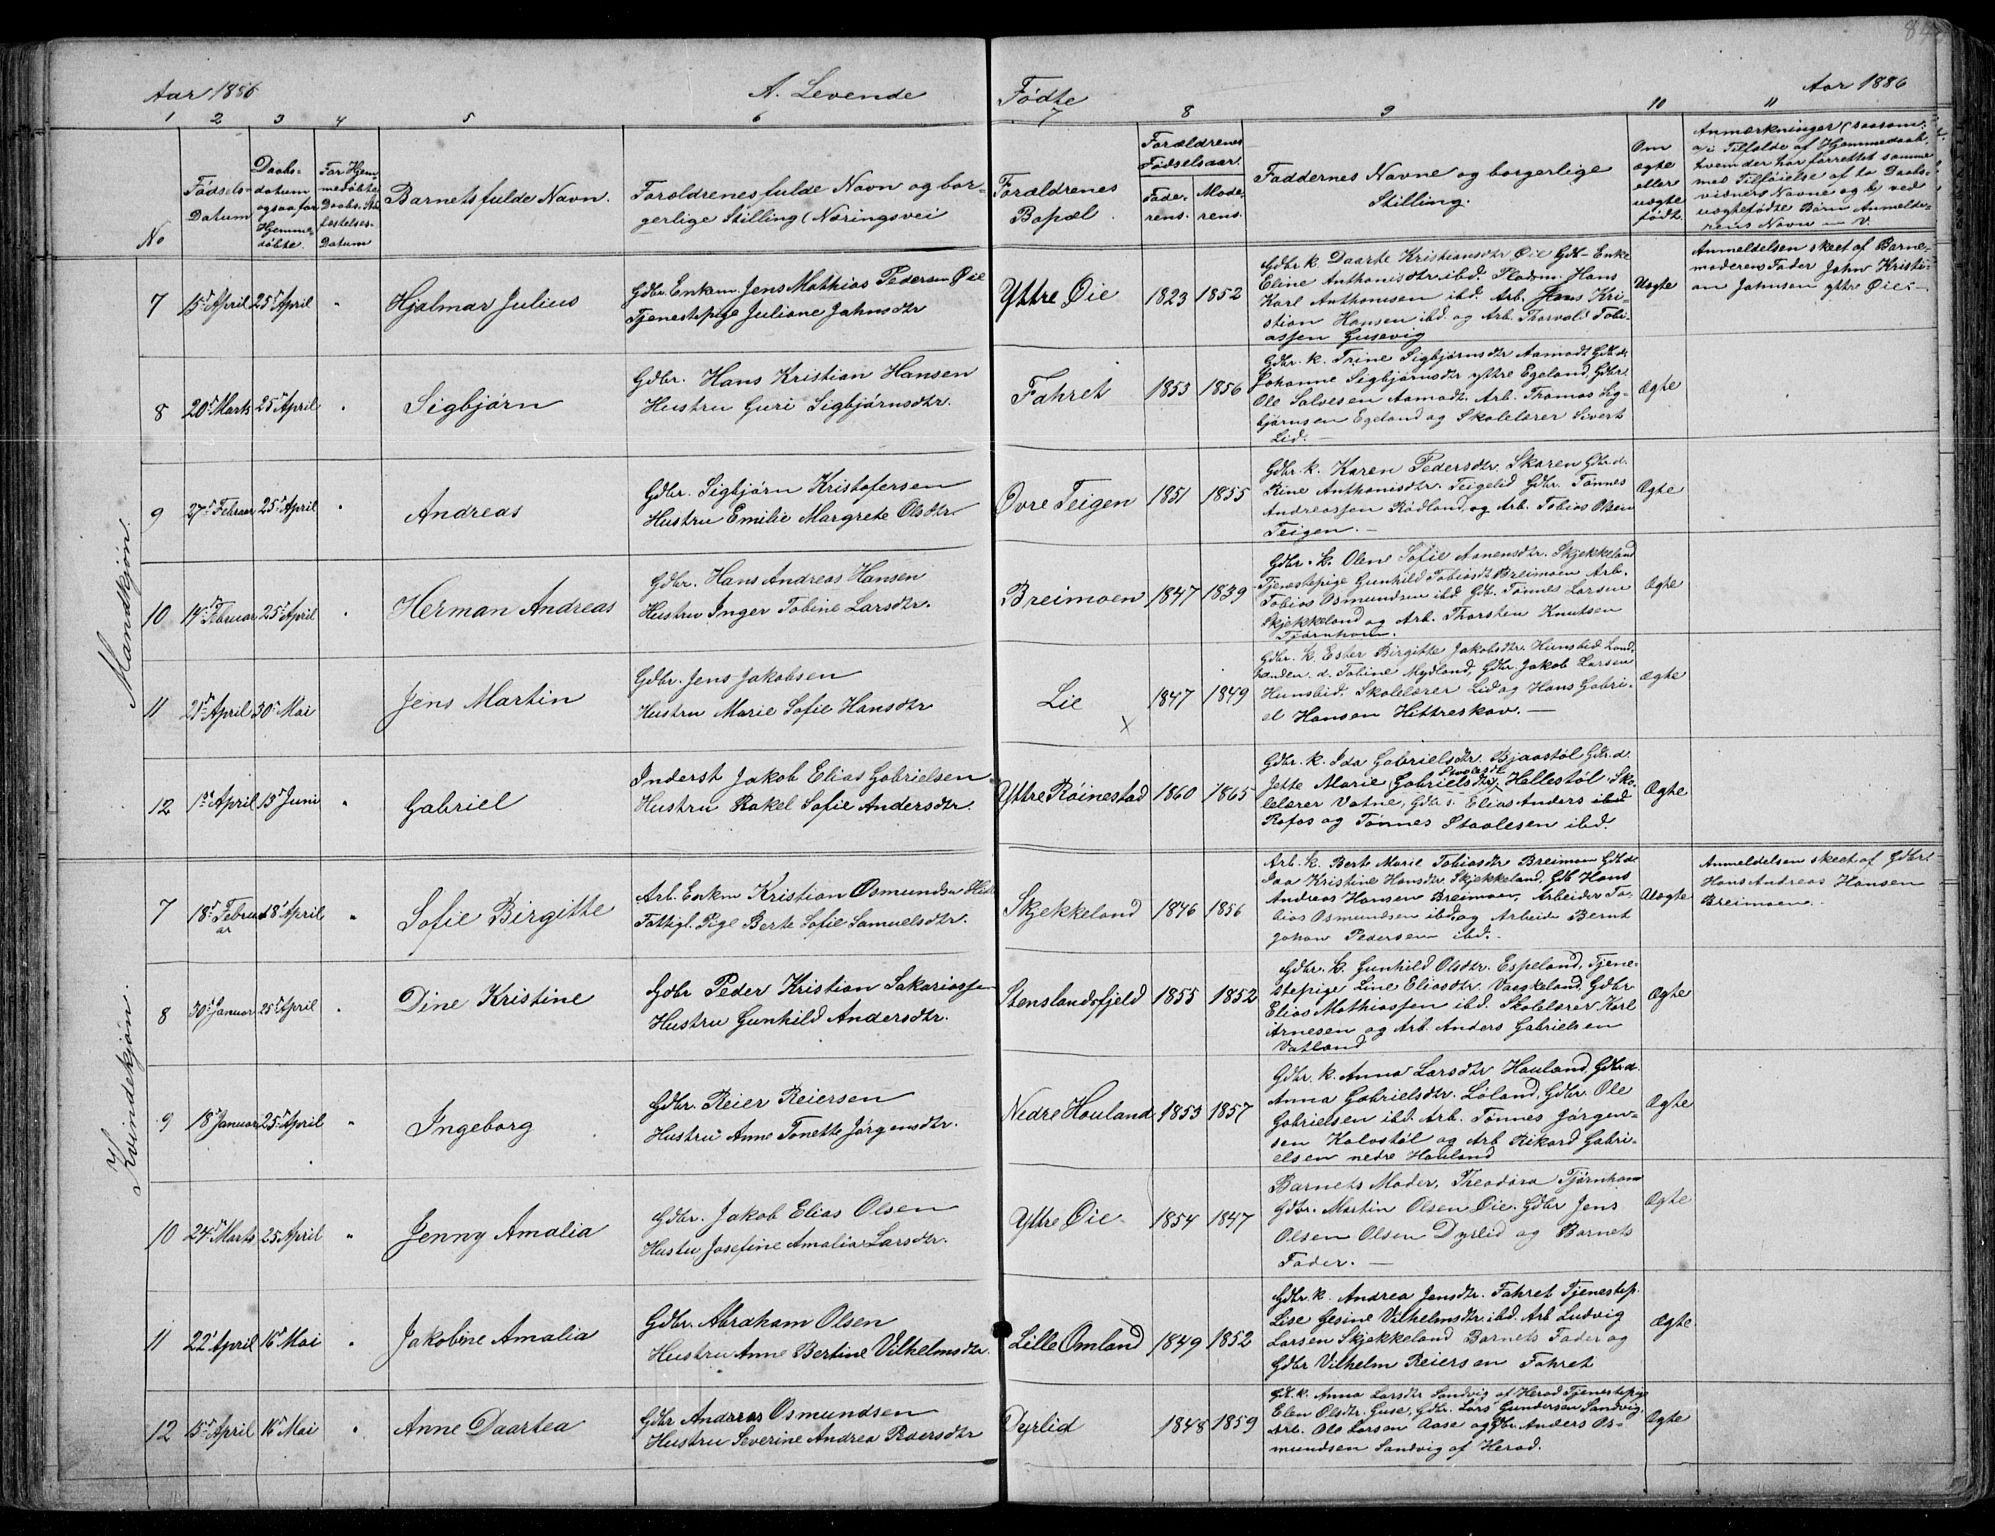 Aar 1886 A. Levende Fødte Aar 1886
1 2 3 4 5 6 7 8 9 10 11
No
Fødsels-
Datum
Daabs-
datum
ogsaa for
Hjemme-
døbte.
For Hjem-
medøbte
Daabs. Sta
festelses-
Datum
Barnets fulde Navn.
Forældrenes fulde Navn og bor-
gerlige Stilling (Næringsvei
Forældrenes
Bopæl.
Forældrenes
Fødselsaar.
Fade-
rens.
Mode-
rens.
Faddernes Navne og borgerlige
Stilling.
Om
ægte
eller
uægte
født.
Anmærkninger (saasom:
a) i Tilfælde af Hjemmedaab,
hvem der har forrettet samme
med Tilføielse af to Daabs-
vidners Navne og b) ved
uægtefødte Børn Anmelde-
rens Navn — V.
Mandkjøn.
7 15de April 25de April " Hjalmar Julius
Gdbr. Enkem. Jens Mathias Pedersen Øie
Tjenestepige Juliane Jahnsdtr
Yttre Øie 1823 1852
Gdbr. k. Daarte Kristiansdtr Øie Gdt- Enke
Eline Anthonisdtr ibd. Pladsm. Hans
Karl Anthonisen ibd. Arb. Jens Kri-
stian Hansen ibd. og Arb. Thorvald Tobi-
assen Gusevig
Uægte
Anmeldelsen skeet af Barne-
moderens Fader John Kristi-
an Johnsen yttre Øie. —
8 20de Marts 25de April " Sigbjørn
Gdbr. Hans Kristian Hansen
Hustru Guri Sigbjørnsdtr.
Fahret 1853 1856
Gdbr. k. Trine Sigbjørnsdtr Aamodt Gdb. d.
Johanne Sigbjørnsdtr yttre Egeland, Gdbr.
Ole Salvesen Aamodt. Arb. Thomas Sig-
bjørnsen Egeland og Skolelærer Sivert
Lid. —
Ægte
9 27de Februar 25de April " Andreas
Gdbr. Sigbjørn Kristofersen
Hustru Emilie Margrete Olsdtr
Øvre Teigen 1851 1855
Gdbr. k. Karen Pedersdtr. Skaren Gdbr. d.
Rine Anthonisdtr. Teigelid Gdbr. Tønnes
Andreassen Rødland og Arb. Tobias Olsen
Teigen. —
Ægte
10 14de Februar 25de April " Herman Andreas
Gdbr. Hans Andreas Hansen
Hustru Inger Tobine Larsdtr.
Breimoen 1847 1839
Gdbr. k. Olene Sofie Aanensdtr. Skjekkeland
Tjenestepige Gunhild Tobiasdtr Breimoen Arb.
Tobias Osmundsen ibd. Gdt. Tønnes Larsen
Skjekkeland og Arb. Thorsten Knutsen
Tjørnhom.
Ægte
11 21de April 30de Mai Jens Martin
Gdbr. Jens Jakobsen
Hustru Marie Sofie Hansdtr
Lie × 1847 1849
Gdbr. k. Ester Birgitte Jakobsdtr. Hunsbed Land-
handen. d. Tobine Mydland, Gdbr. Jakob Larsen
Hunsbid. Skolelærer Lid og Hans Gabri-
el Hanson Hittreskov. —
Ægte
12 1ste April 15de Juni " Gabriel
Inderst Jakob Elias Gabrielsen
Hustru Rakel Sofie Andersdtr.
Yttre Røinestad 1860 1865
Gdbr. k. Ida Gabrielsdtr. Bjaastøl Gdb. d.
Jette Marie Gabrielsdtr, Hallestøl. Sko-
lelærer Vatne, Gdb. s. Elias Anders ibd
Rofos og Tønnes Staalesen ibd.
Ægte
Kvindekjøn.
7 18de Febru-
ar 18de April " Sofie Birgitte
Arb. Enkm Kristian Osmundsn
Fattigl. Pige Berte Sofie Samuelsdtr.
Skjekkeland 1846 1856
Arb. k. Berte Marie Tobiasdtr Breimoen Gdb. d.
Ida Kristine Hansdtr Skjekkeland, Gdb Hans
Andreas Hansen Breimoen, Arbeider To-
bias Osmundsen ibd. og Arbeid. Bernt
Johan Pedersen ibd.
Uægte
Anmeldelsen skeet af Gdbr.
Hans Andreas Hansen
Breimoen.
8 30de Januar 25de April " Dine Kristine
Gdbr Peder Kristian Sakariassen
Hustru Gunhild Andersdtr.
Stenslandsfjeld 1855 1852
Gdbr. k. Gunhild Olsdtr. Espeland, Tjene-
stepige Line Eliasdtr. Vaeskeland, Gdbr
Elias Mathiassen ibd. Skolelærer Karl
Arnesen og Arb. Anders Gabrielsen
Vatland
Ægte
9 18de Januar 25de April " Ingeborg
Gdbr. Reier Reiersen
Hustru Anne Tonette Jørgensdtr.
Nedre Houland 1853 1857
Gdbr. k. Anna Larsdtr Houland, Gdbr. d.
Anna Gabrielsdtr. Løland, Gdbr. Ole
Gabrielsen ibd. Arb. Tønnes Jørgen-
sen Kalvstøl og Arb Rikard Gabri-
elsen nedre Houland
Ægte
10 24de Marts 25 April " Jenny Amalia
Gdbr. Jakob Elias Olsen
Hustru Josefine Amalia Larsdtr.
Yttre Øie. 1854 1847
Barnets Moder, Theodora Tjørnhom
Gdbr. Martin Olsen Øie. Gdbr Jens
Olsen Olsen Dyrlid og Barnets
Fader. —
Ægte
11 22de April 16de Mai " Jakobine Amalia
Gdbr. Abraham Olsen
Hustru Anne Bertine Vilhelmsdtr.
Lille Omland 1849 1852
Gdbr. k. Andrea Jensdtr. Fahret Tjenestep.
Lise Gesine Vilhelmsdtr. ibd. Arb Ludvig
Larsen Skjekkeland Barnets Fader og
Gdbr Vilhelm Reiersen Fahret
Ægte
12 15de April 16de Mai " Anne Daartea
Gdbr Andreas Osmundsen
Hustru Severine Andrea Roersdtr
Dyrlid 1848 1859
Gd. k. Anna Larsdtr Sandvig af Herad Tjenestepige
Elen Olsdtr. Guse, Gdbr. Lars Gundersen Sandvig.
Arb. Ole Larsen Aase og Gdbr. Anders Os-
mundsen Sandvig af Herad.
Ægte